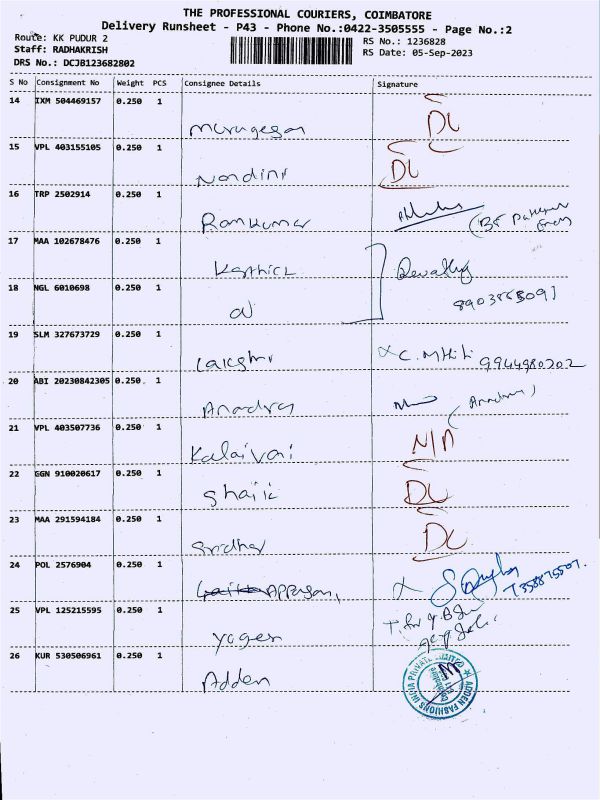 THE PROFESSIONAL COURIERS, COIMBATORE
Delivery Runsheet - P43 - Phone No.:0422-3505555 - Page No.:2
Route: KK PUDUR 2
RS No.: 1236828
Staff: RADHAKRISH
RS Date: 05-Sep-2023
DRS No.: DCJB123682802
S No Consignment No Weight PCS Consignee Details Signature
14 IXM 504469157 0.250 1
Murugesan DL
15 VPL 403155105 0.250 1
Nandini DL
16 TRP 2502914 0.250 1
Ramkumar
17 MAA 102678476 0.250 1
Karthick
18 NGL 6010698 0.250 1
19 SLM 327673729 0.250 1
Lakshmi C. 9944980202
20 ABI 20230842305 0.250 1
21 VPL 403507736 0.250 1
Kalaivani N/A
22 GGN 910020617 0.250 1
DL
23 MAA 291594184 0.250 1
Sridhar DL
24 POL 2576904 0.250 1
25 VPL 125215595 0.250 1
Yogesh
26 KUR 530506961 0.250 1
Adden
ADDEN FASHIONS INDIA PRIVATE LIMITED